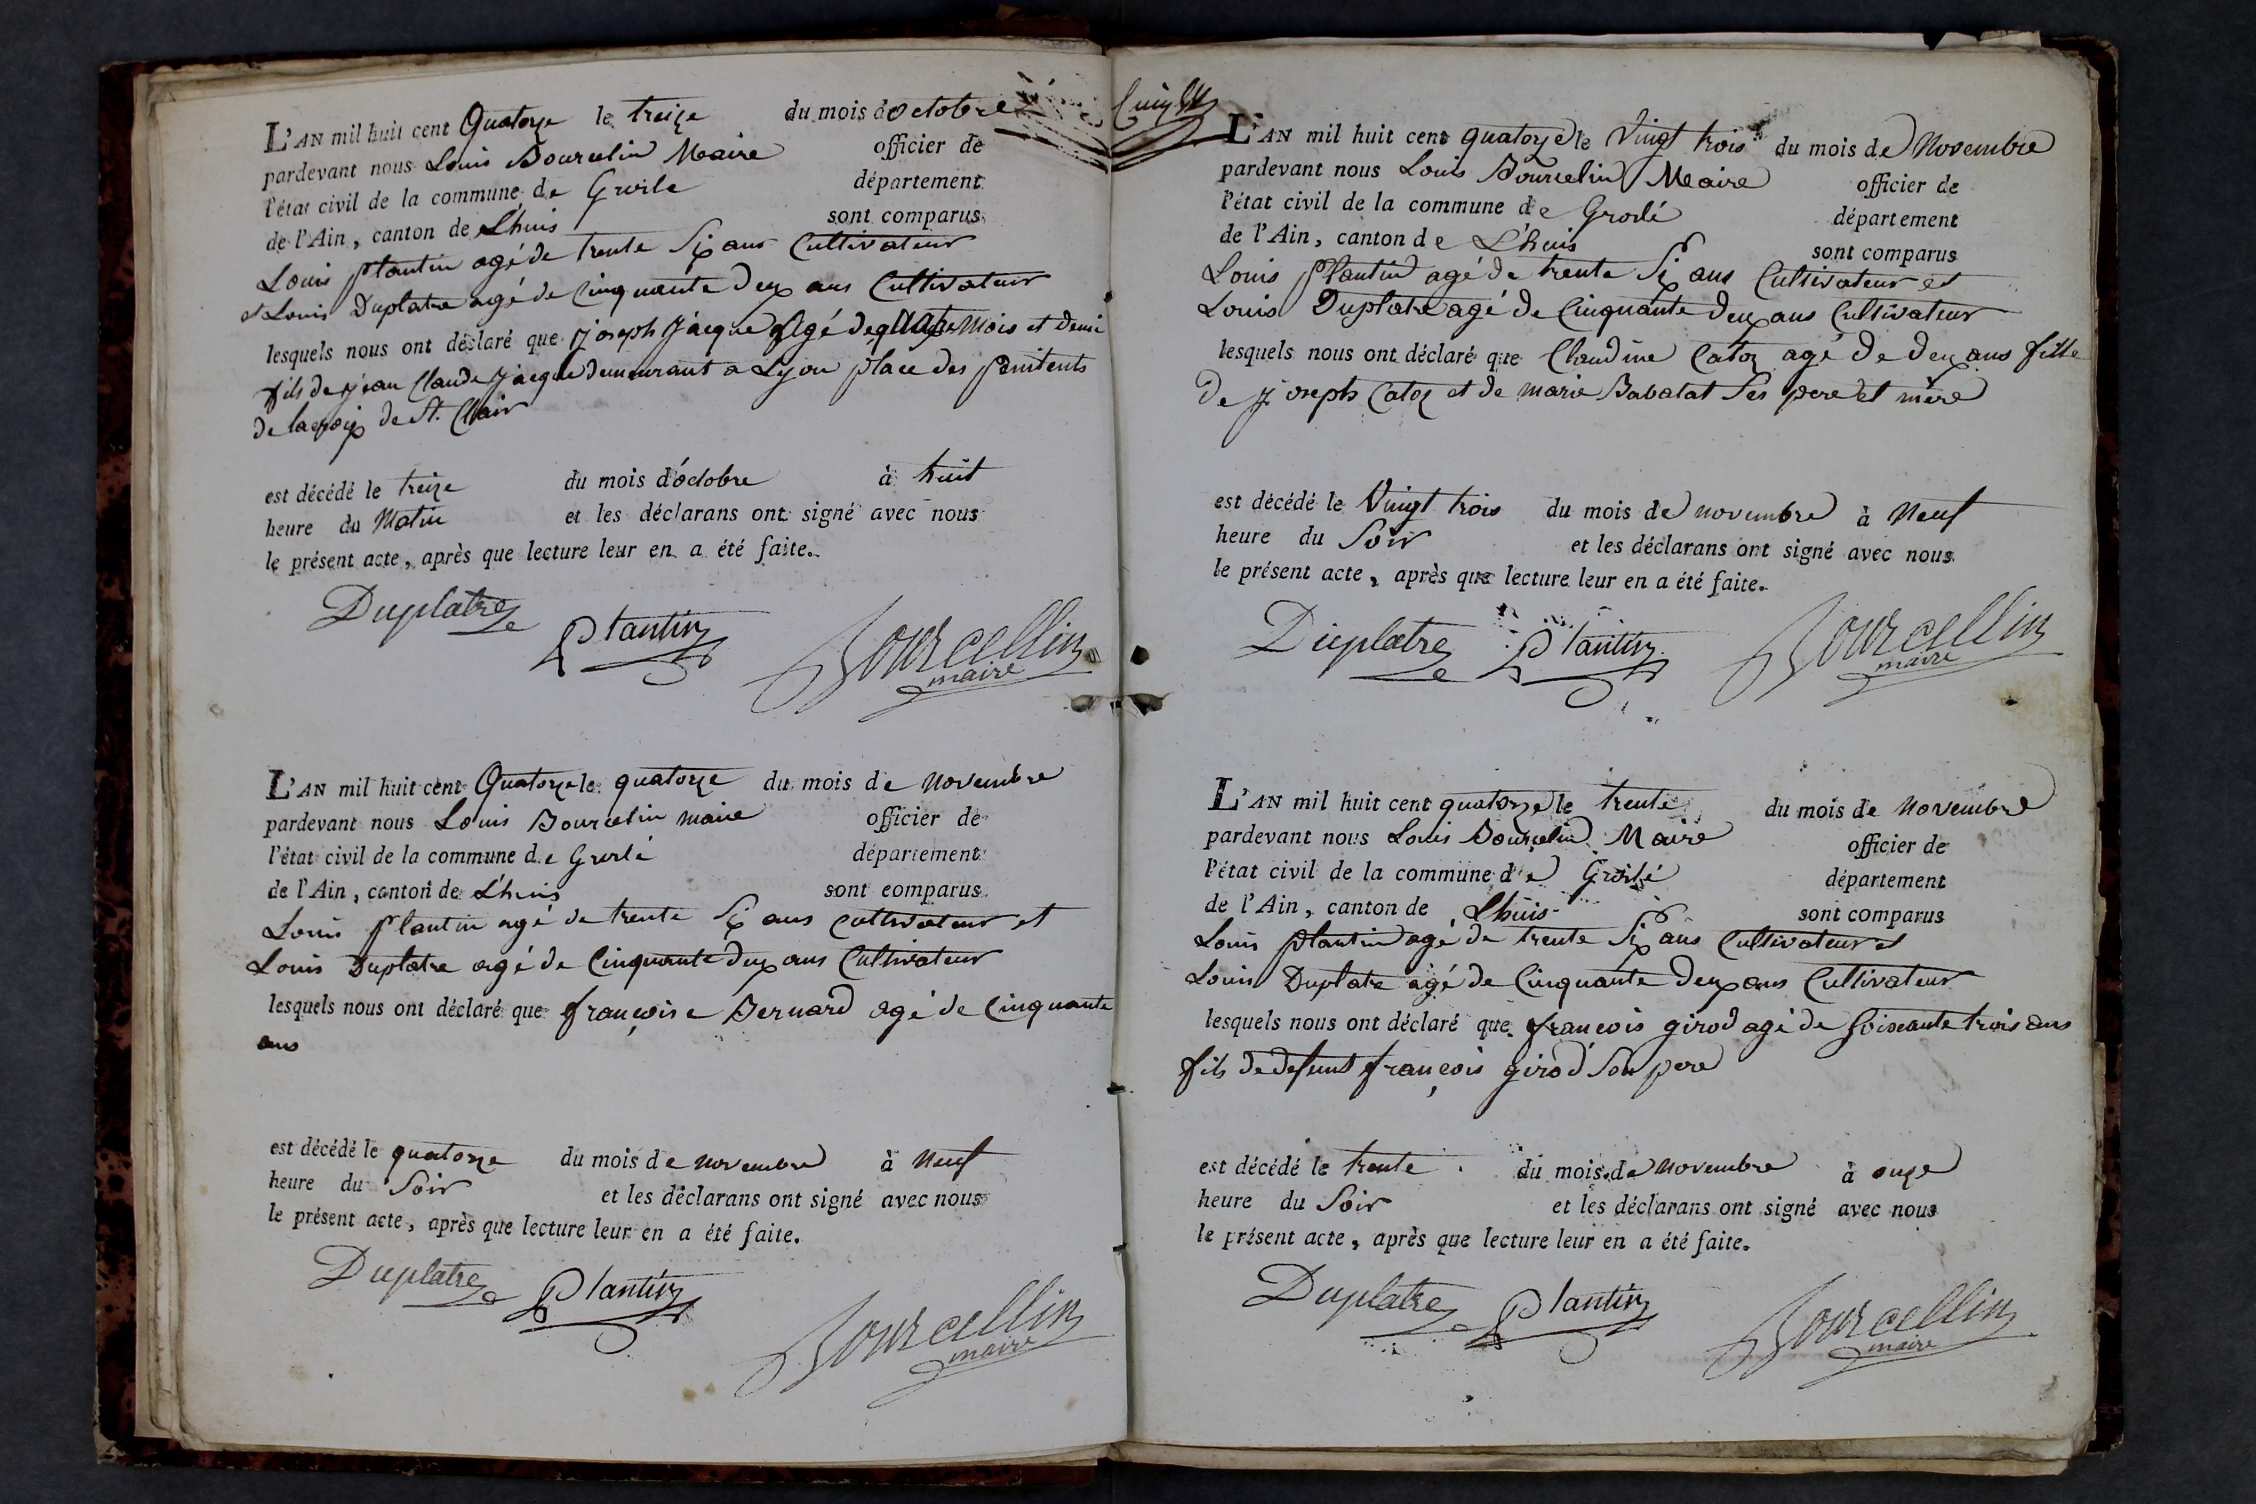 L'AN mil huit cent Quatorze le treize du mois d'octobre
pardevant nous Louis Bourcelin Maire officier de
l'état civil de la commune de Groslé département
de l'Ain, canton de Lhuis sont comparus
Louis plantin agé de trente Six ans Cultivateur
et Louis Duplatre agé de Cinquante deux ans Cultivateur
lesquels nous ont déclaré que joseph jacque Agé de quatre Mois et demie
fils de jean Claude jacque demeurant a Lyon place des penitents
de la croix de St. Clair
est décédé le treize du mois d'octobre à huit
heure du Matin et les déclarans ont signé avec nous
le présent acte, après que lecture leur en a été faite.
Duplatre Plantin Bourcellin
maire
L'AN mil huit cent Quatorze le quatorze du mois de novembre
pardevant nous Louis Bourcelin maire officier de
l'état civil de la commune de Groslé département
de l'Ain, canton de L'huis sont comparus
Louis plantin agé de trente Six ans cultivateur et
Louis Duplatre agé de Cinquante deux ans Cultivateur
lesquels nous ont déclaré que françoise Bernard agé de Cinquante
ans
est décédé le quatorze du mois de novembre à neuf
heure du Soir et les déclarans ont signé avec nous
le présent acte, après que lecture leur en a été faite.
Duplatre Plantin Bourcellin
maire
L'AN mil huit cent quatorze le Vingt trois du mois de Novembre
pardevant nous Louis Bourcelin Maire officier de
l'état civil de la commune de Groslé département
de l'Ain, canton de L'huis sont comparus
Louis Plantin agé de trente Six ans Cultivateur et
Louis Duplatre agé de Cinquante deux ans Cultivateur
lesquels nous ont déclaré que Claudine Catoz agé de deux ans fille
De joseph Catoz et de marie Babolat Ses pere et mère
est décédé le Vingt trois du mois de novembre à Neuf
heure du Soir et les déclarans ont signé avec nous
le présent acte, après que lecture leur en a été faite.
Duplatre Plantin Bourcellin
maire
L'AN mil huit cent quatorze le trente du mois de Novembre
pardevant nous Louis Bourcelin Maire officier de
l'état civil de la commune de Groslé département
de l'Ain, canton de Lhuis sont comparus
Louis plantin agé de trente Six ans Cultivateur et
Louis Duplatre agé de Cinquante deux ans Cultivateur
lesquels nous ont déclaré que françois girod agé de Soixante trois ans
fils de defunt françois girod Son pere
est décédé le trente du mois de Novembre à onze
heure du Soir et les déclarans ont signé avec nous
le présent acte, après que lecture leur en a été faite.
Duplatre Plantin Bourcellin
maire